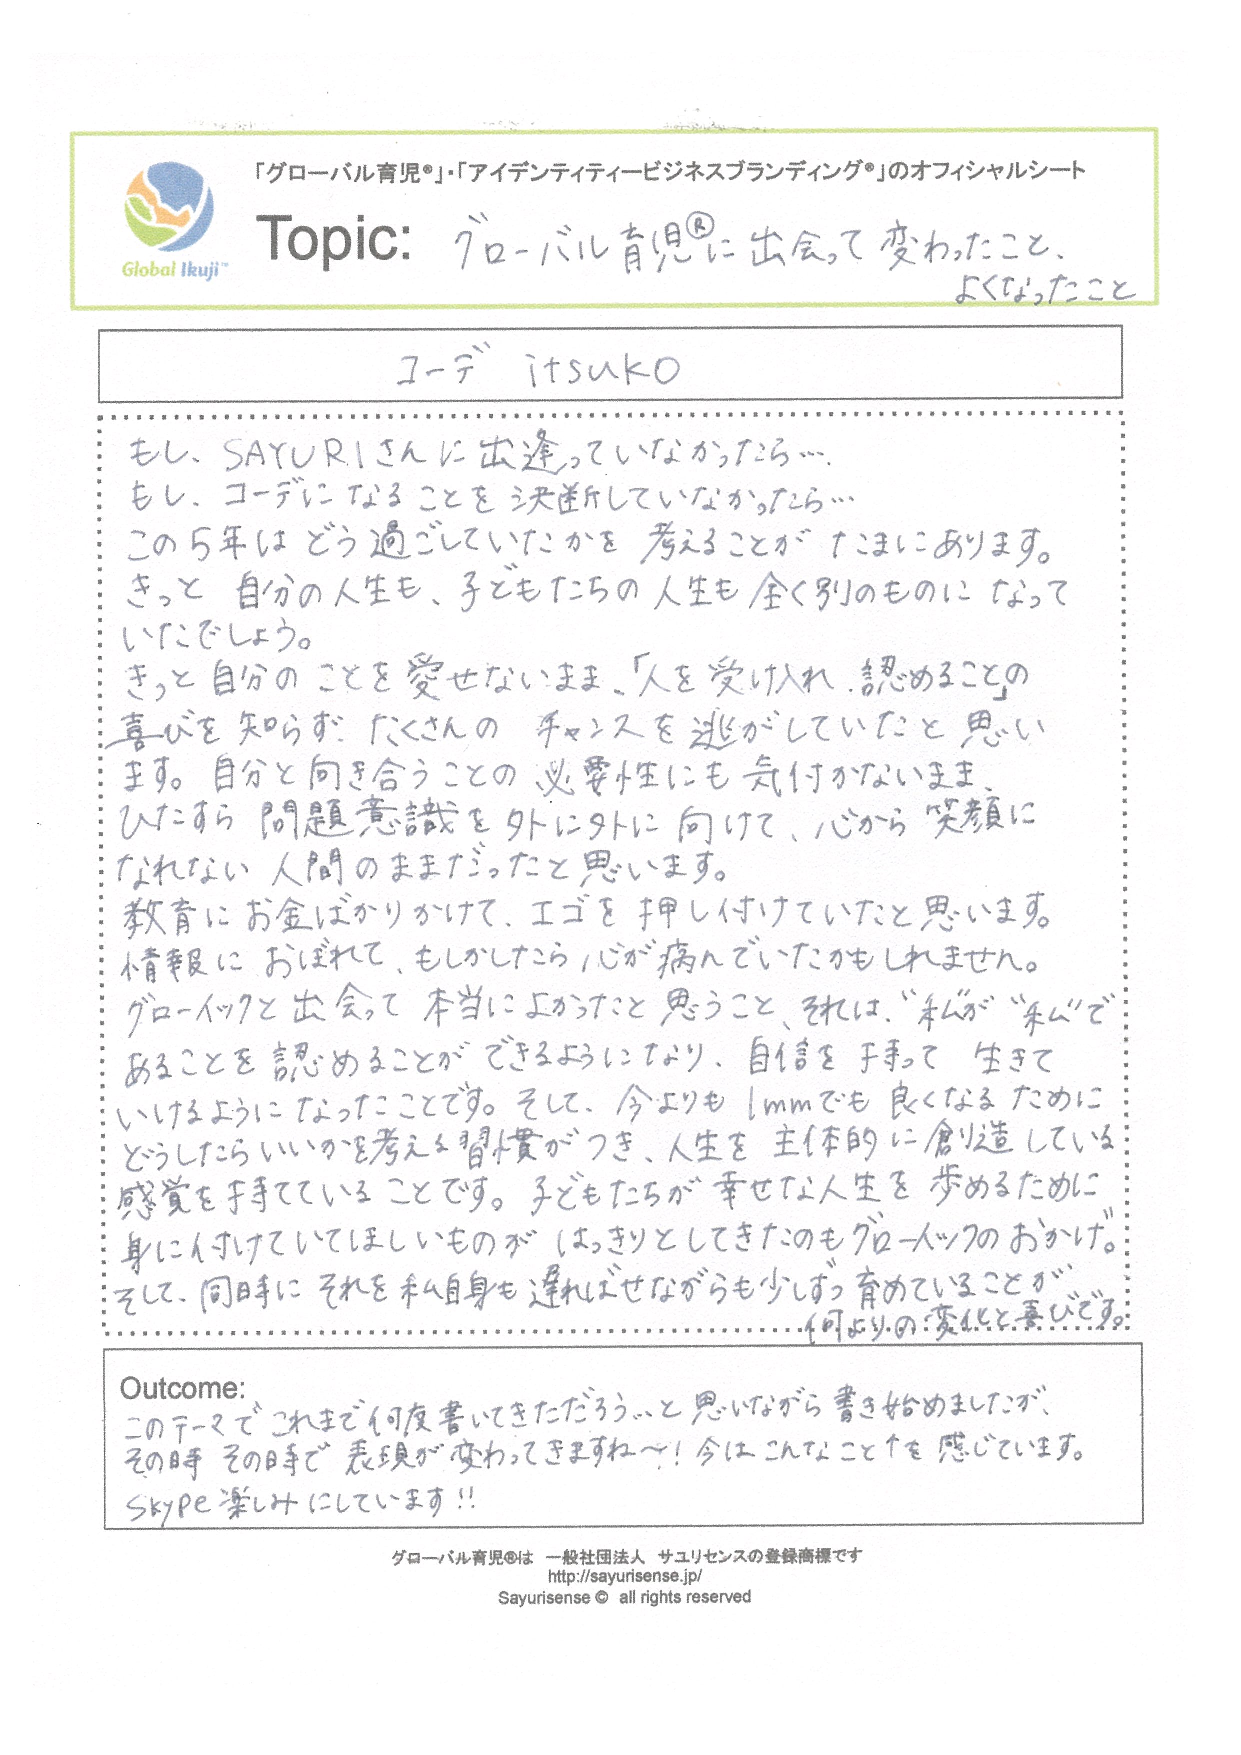 「グローバル育児®」・「アイデンティティービジネスブランディング®」のオフィシャルシート
Global Ikuji™
Topic: グローバル育児®に出会って変わったこと、
よくなったこと
コーデ itsuko
もし、SAYURIさんに出逢っていなかったら…
もし、コーデになることを決断していなかったら…
この5年はどう過ごしていたかを考えることがたまにあります。
きっと自分の人生も、子どもたちの人生も全く別のものになって
いたでしょう。
きっと自分のことを愛せないまま、「人を受け入れ、認めること」の
喜びを知らず、たくさんのチャンスを逃がしていたと思い
ます。自分と向き合うことの必要性にも気付かないまま、
ひたすら問題意識を外に外に向けて、心から笑顔に
なれない人間のままだったと思います。
教育にお金ばかりかけて、エゴを押し付けていたと思います。
情報におぼれて、もしかしたら心が病んでいたかもしれません。
グローイックと出会って本当によかったと思うこと、それは、“私”が“私”で
あることを認めることができるようになり、自信を持って生きて
いけるようになったことです。そして、今よりも1mmでも良くなるために
どうしたらいいかを考える習慣がつき、人生を主体的に創り造している
感覚を持てていることです。子どもたちが幸せな人生を歩めるために
身に付けていてほしいものがはっきりとしてきたのもグローイックのおかげ。
そして、同時にそれを私自身も遅ればせながらも少しずつ育めていることが
何よりの変化と喜びです。
Outcome:
このテーマでこれまで何度書いてきただろう…と思いながら書き始めましたが、
その時その時で表現が変わってきますね〜!今はこんなこと↑を感じています。
Skype楽しみにしています!!
グローバル育児®は 一般社団法人 サユリセンスの登録商標です
http://sayurisense.jp/
Sayurisense © all rights reserved